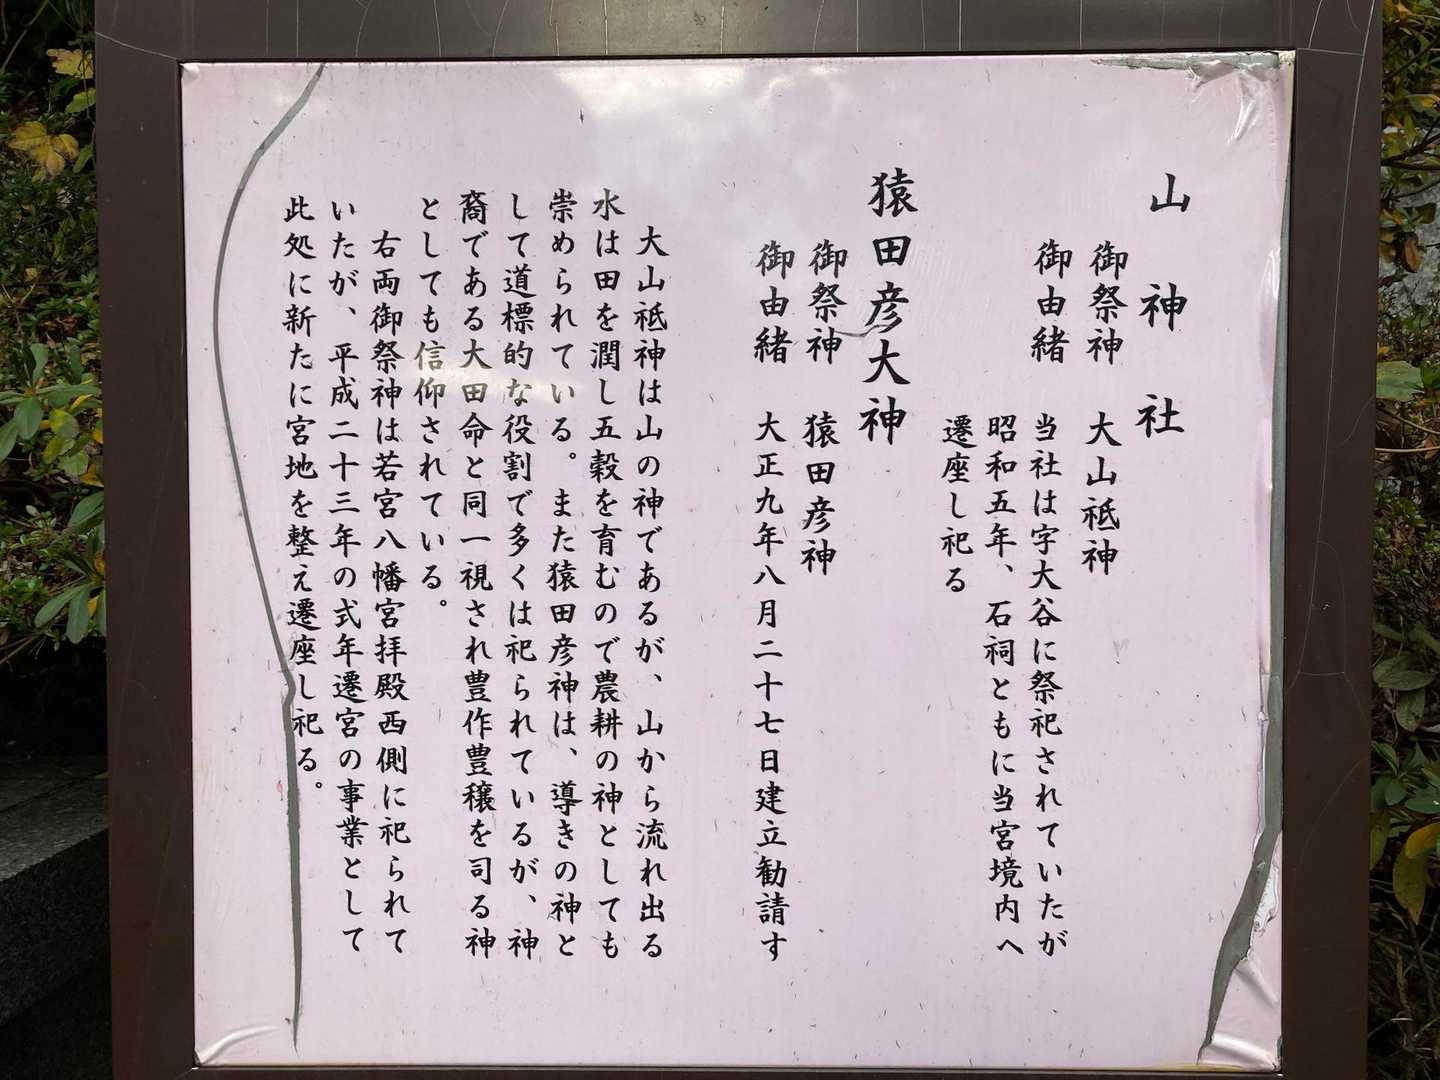 山神社
御祭神　大山祗神
御由緒　当社は字大谷に祭祀されていたが
昭和五年、石祠ともに当宮境内へ
遷座し祀る
猿田彦大神
御祭神　猿田彦神
御由緒　大正九年八月二十七日建立勧請す
大山祗神は山の神であるが、山から流れ出る
水は田を潤し五穀を育むので農耕の神としても
崇められている。また猿田彦神は、導きの神と
して道標的な役割で多くは祀られているが、神
裔である大田命と同一視され豊作豊穣を司る神
としても信仰されている。
右両御祭神は若宮八幡宮拝殿西側に祀られて
いたが、平成二十三年の式年遷宮の事業として
此処に新たに宮地を整え遷座し祀る。